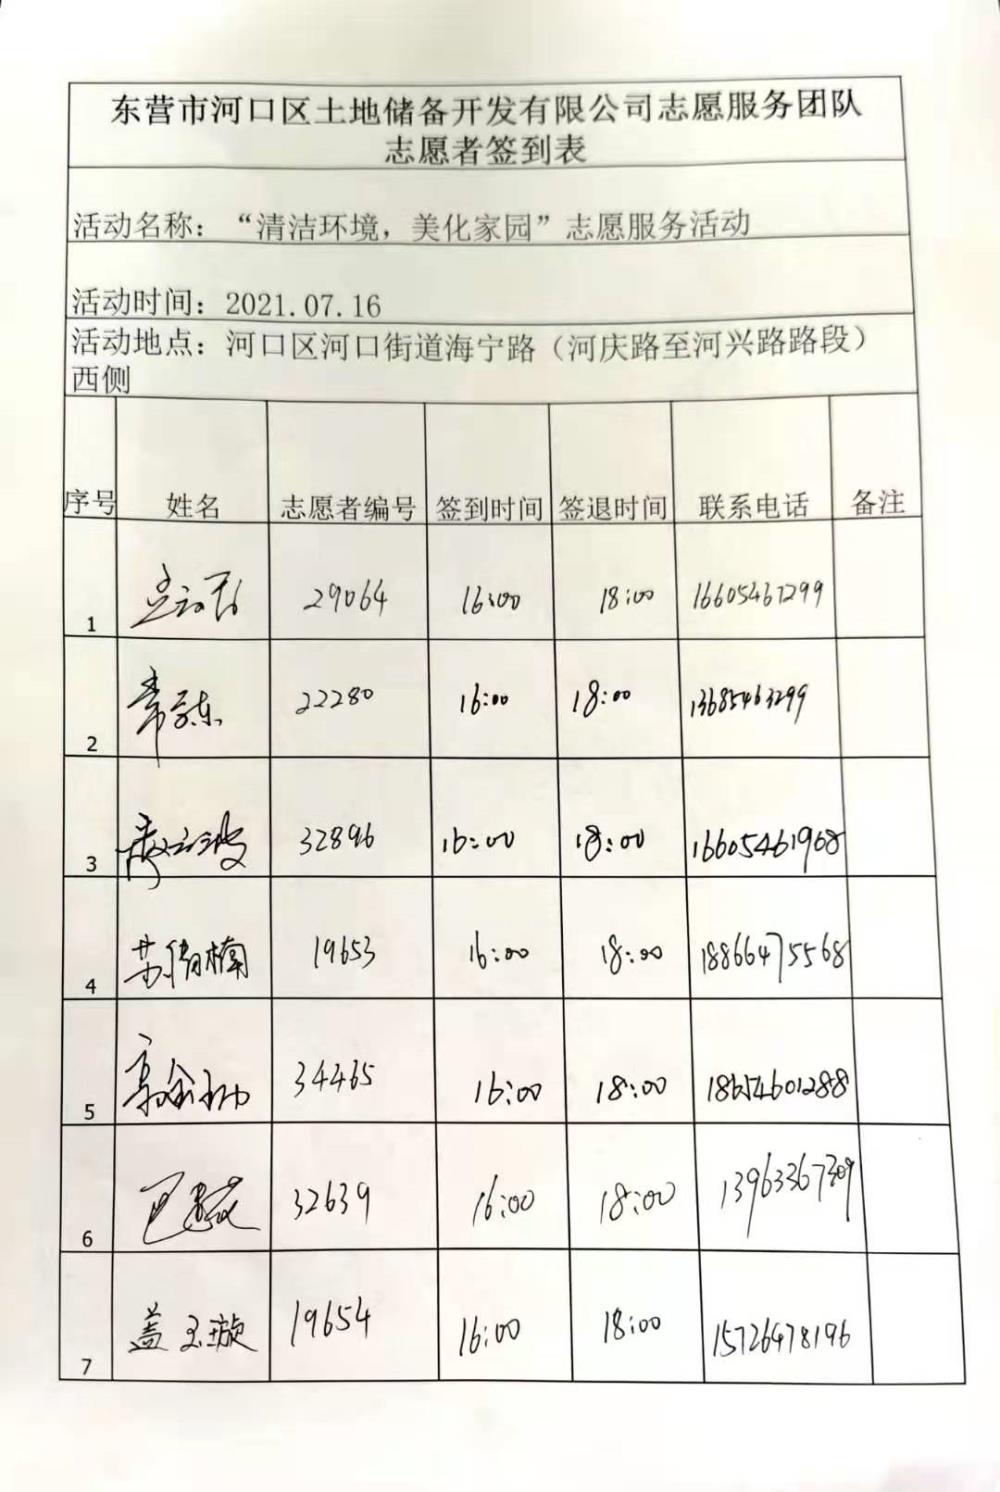 东营市河口区土地储备开发有限公司志愿服务团队
志愿者签到表
活动名称：“清洁环境，美化家园”志愿服务活动
活动时间：2021.07.16
活动地点：河口区河口街道海宁路（河庆路至河兴路路段）
西侧
序号 姓名 志愿者编号 签到时间 签退时间 联系电话 备注
1 29064 16:00 18:00 16605467299
2 22280 16:00 18:00 13685463299
3 32896 16:00 18:00 16605461968
4 19653 16:00 18:00 18866475568
5 34465 16:00 18:00 18654601288
6 32639 16:00 18:00 13963367309
7 盖玉璇 19654 16:00 18:00 15726478196